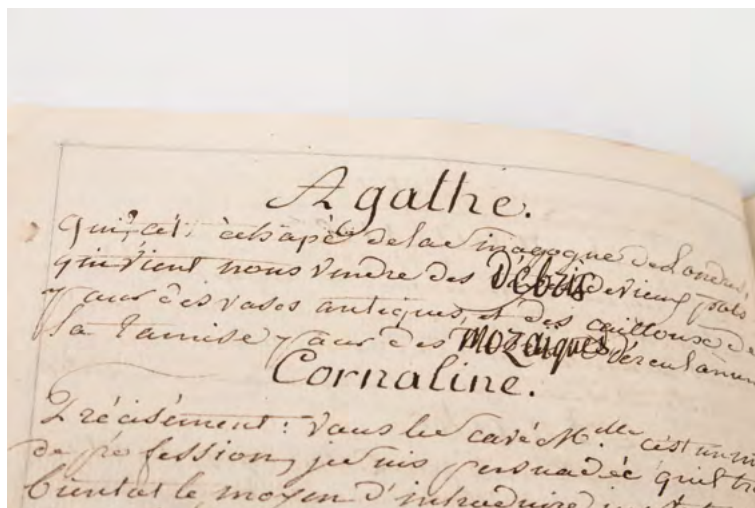 Agathe.
qui s'est échapé de la sinagogue de Londres
qui vient nous vendre des débris de vieux pots
pour des vases antiques, et des cailloux de
la Tamise pour des mozaiques d'erculanum
Cornaline.
Précisément: vous le cavé Mlle c'est un
de profession, je suis persuadée qu'il
bientot le moyen d'introduire